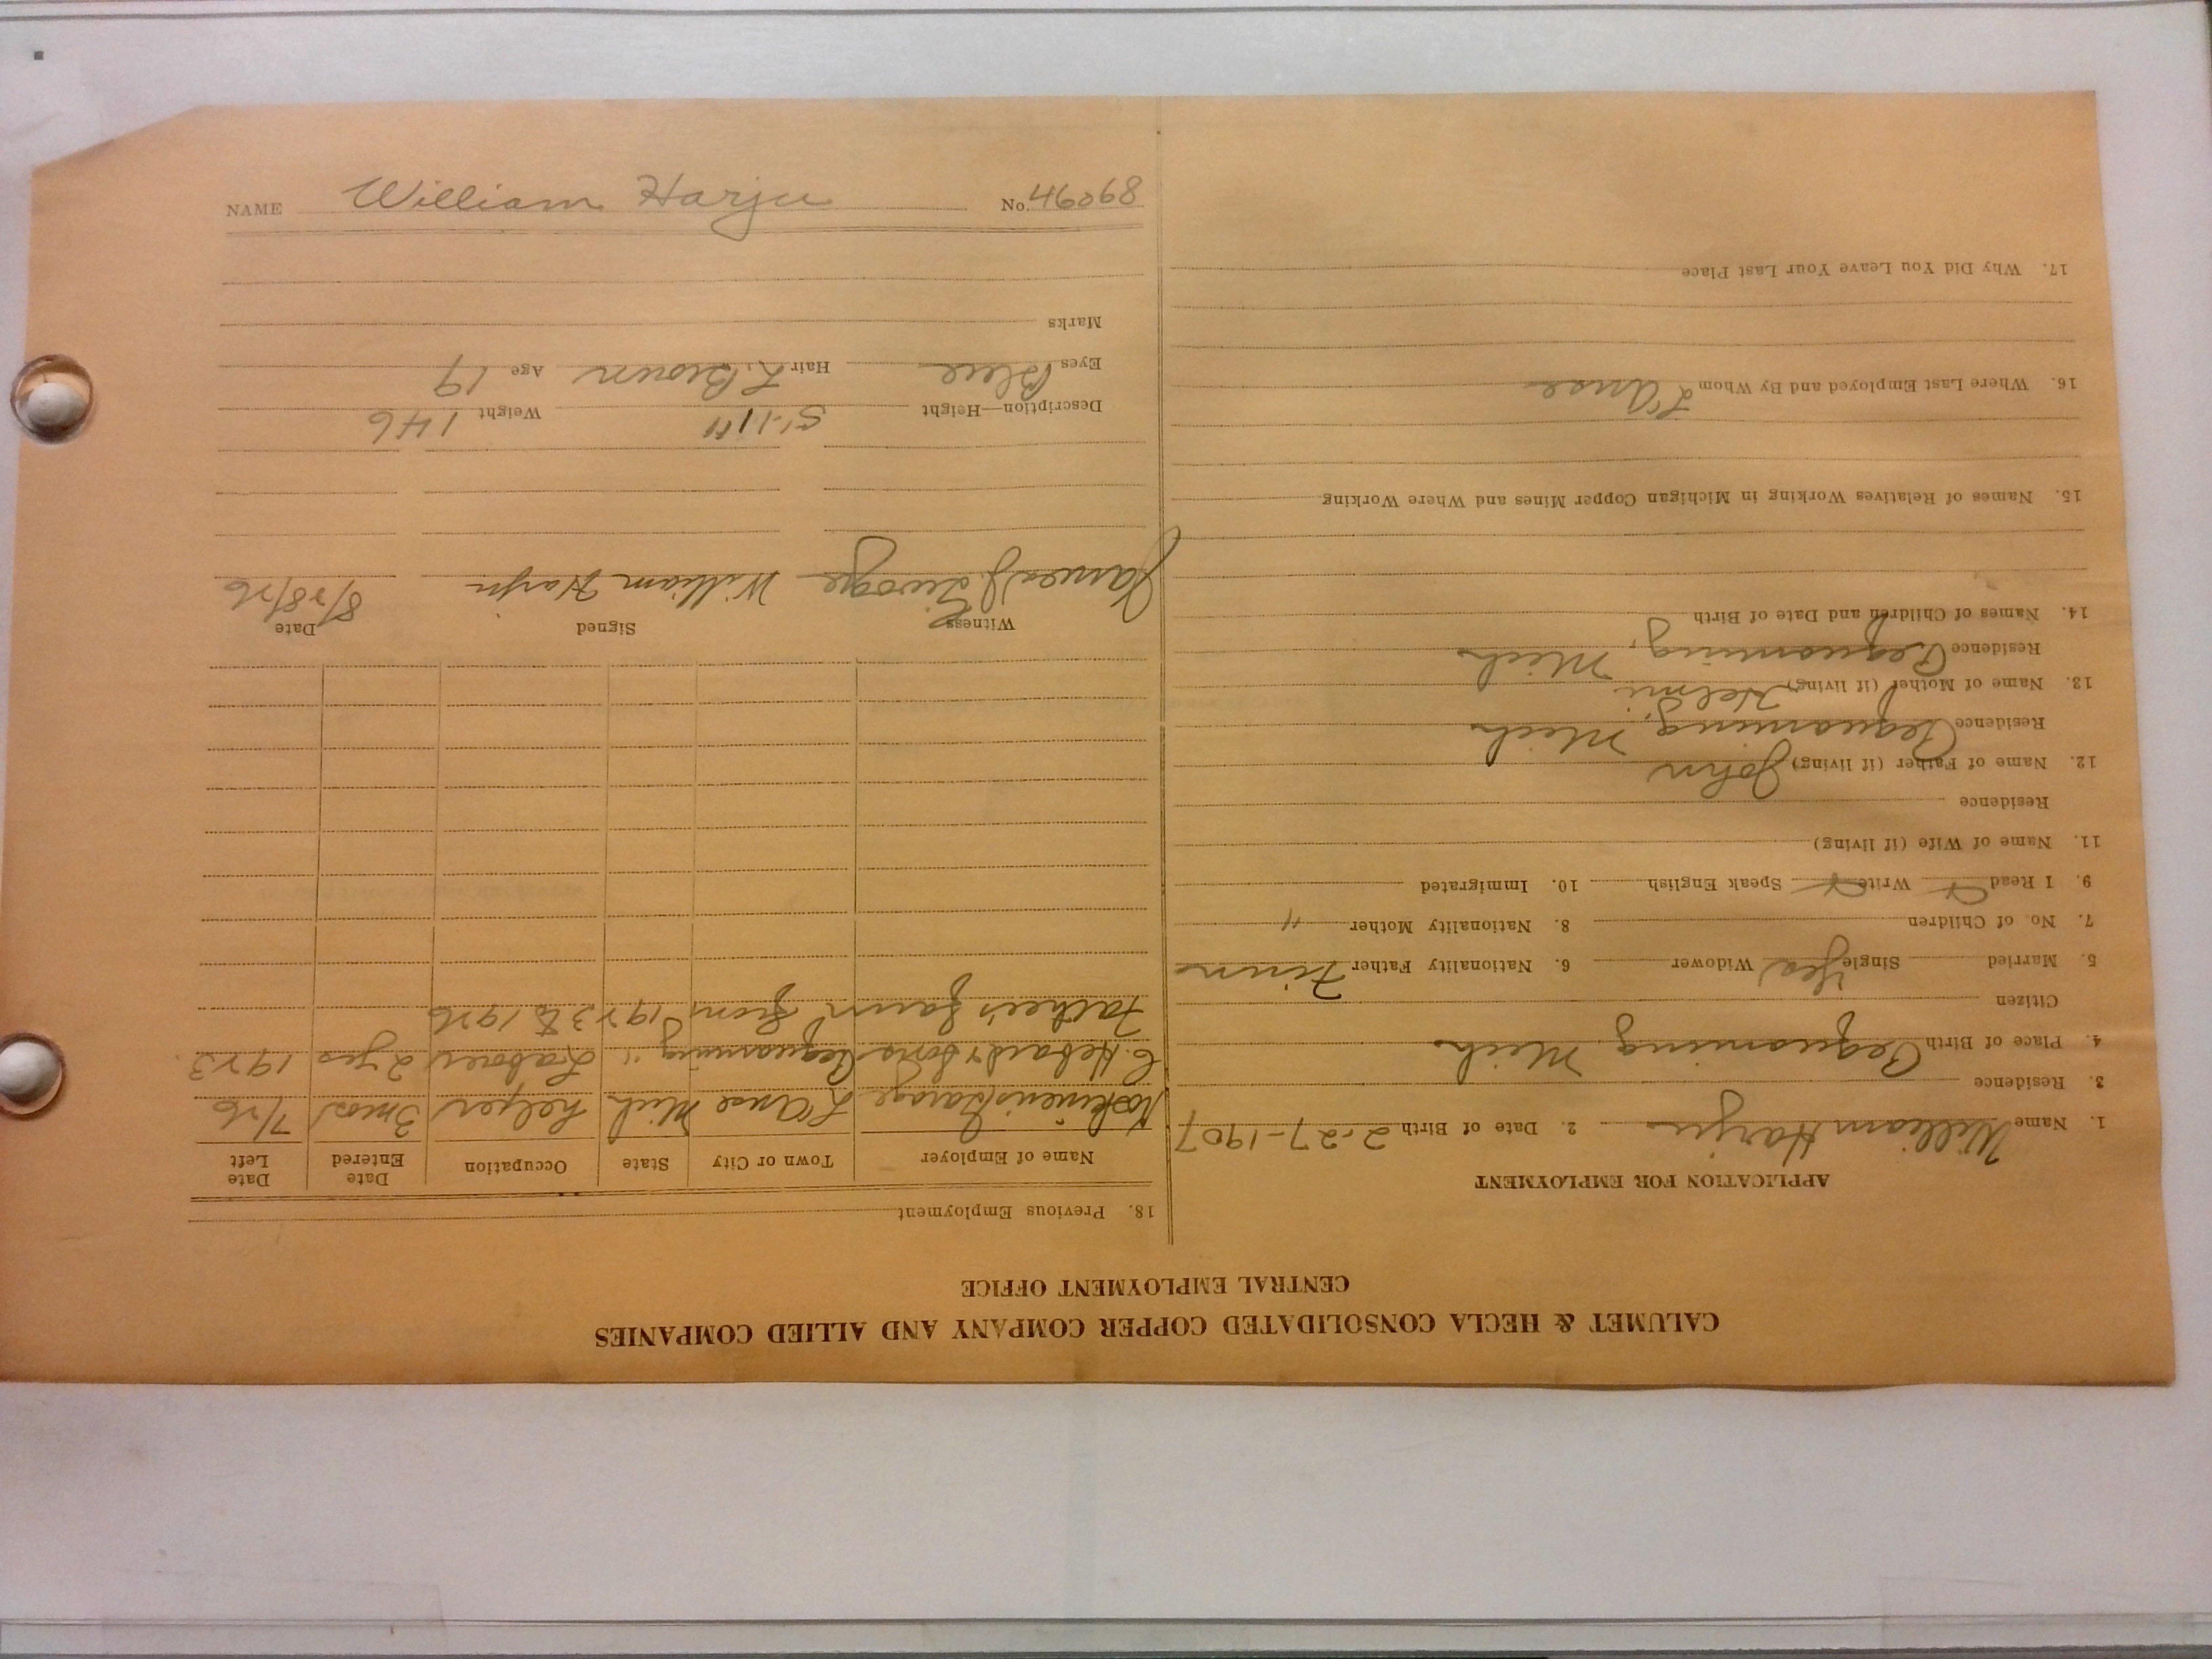 CALUMET & HECLA CONSOLIDATED COPPER COMPANY AND ALLIED COMPANIES
CENTRAL EMPLOYMENT OFFICE
APPLICATION FOR EMPLOYMENT
1. Name William Harju 2. Date of Birth 2-27-1907
3. Residence
4. Place of Birth Pequaming, Mich
Citizen
5. Married Single Yes Widower 6. Nationality Father Finn
7. No. of Children 8. Nationality Mother "
9. I Read Write Speak English 10. Immigrated
11. Name of Wife (if living)
Residence
12. Name of Father (if living) John
Residence Pequaming, Mich
13. Name of Mother (if living) Helmi
Residence Pequaming, Mich
14. Names of Children and Date of Birth
15. Names of Relatives Working in Michigan Copper Mines and Where Working
16. Where Last Employed and By Whom L'Anse
17. Why Did You Leave Your Last Place
18. Previous Employment
Name of Employer Town or City State Occupation Date Entered Date Left
Garage L'Anse Mich helper 3 mos 7/26
C. Hebard & Sons Pequaming " Laborer 2 yrs 1923
Father's farm from 1923 to 1926
Witness Signed Date
James J. William Harju 8/28/26
Description—Height 5'-11" Weight 146
Eyes Blue Hair L. Brown Age 19
Marks
NAME William Harju No. 46068